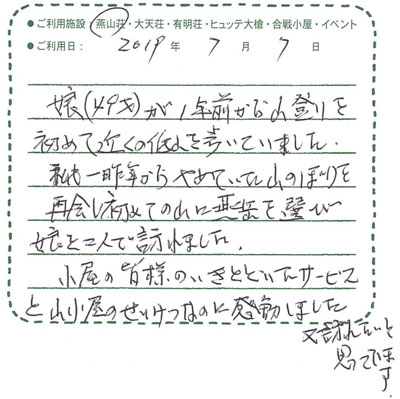 ●ご利用施設・燕山荘・大天荘・有明荘・ヒュッテ大槍・合戦小屋・イベント
●ご利用日：2019年 7月 7日
娘(49才)が1年前から山登りを
初めて近くの低山を歩いていました.
私も一昨年からやめていた山のぼりを
再会し初めての山に燕岳を選び
娘と二人で訪れました.
小屋の皆様のいきとどいたサービス
と山小屋のせいけつなのに感動しました
又訪れたいと
思っています.